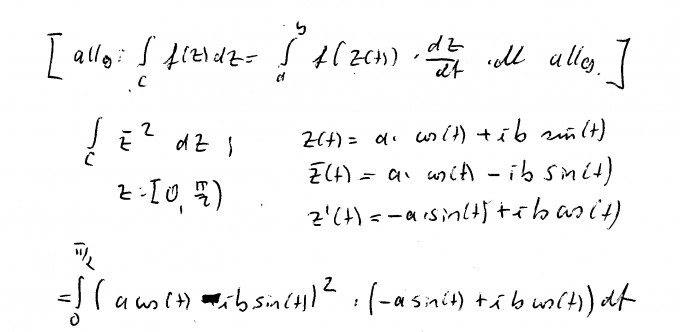 [ allg: ∫_C f(z) dz = ∫_a^b f(z(t)) · dz/dt · dt allg. ]
∫_C z̄² dz ; z(t) = a · cos(t) + i b sin(t)
z : [0, π/2) z̄(t) = a · cos(t) - i b sin(t)
z'(t) = -a · sin(t) + i b cos(t)
= ∫_0^{π/2} ( a cos(t) - i b sin(t) )² · (-a sin(t) + i b cos(t)) dt